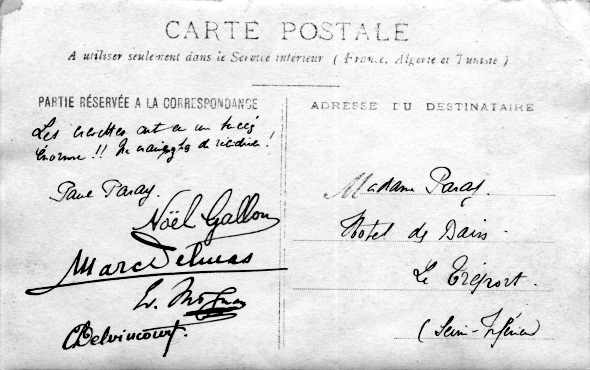 CARTE POSTALE
A utiliser seulement dans le Service intérieur ( France, Algérie et Tunisie )
PARTIE RÉSERVÉE A LA CORRESPONDANCE
Les crevettes ont eu un succès
énorme !! de !
Paul Paray
Noël Gallon
Marc Delmas
Mignan
CDelvincourt.
ADRESSE DU DESTINATAIRE
Madame Paray.
Hotel de Bains
Le Tréport.
(Seine-Inférieure